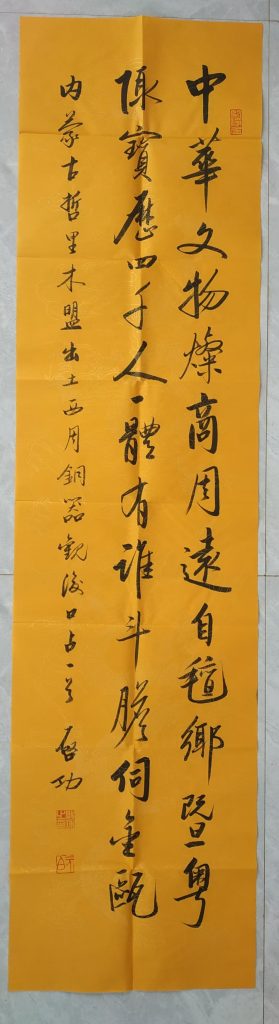 中華文物燦商周遠自氊鄉暨粤
陬寶歷四千人一體有誰斗膽伺金甌
内蒙古哲里木盟出土西周銅器觀後口占一首 啓功